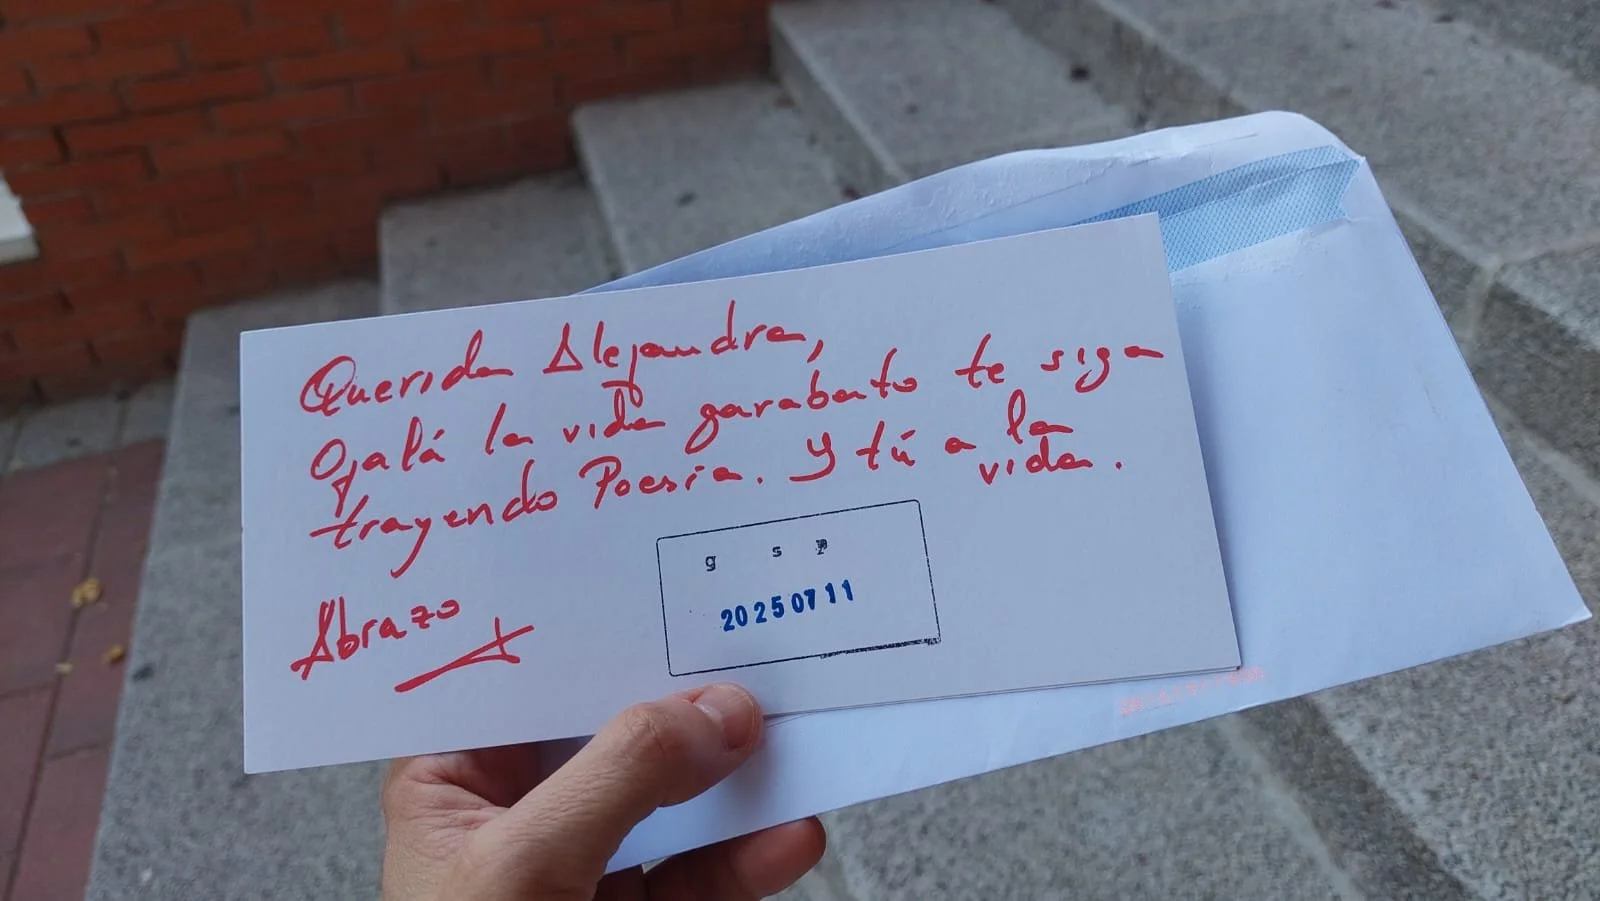 Querida Alejandra,
Ojalá la vida garabato te siga
trayendo Poesía. Y tú a la
vida.
Abrazo
g s p
20250711